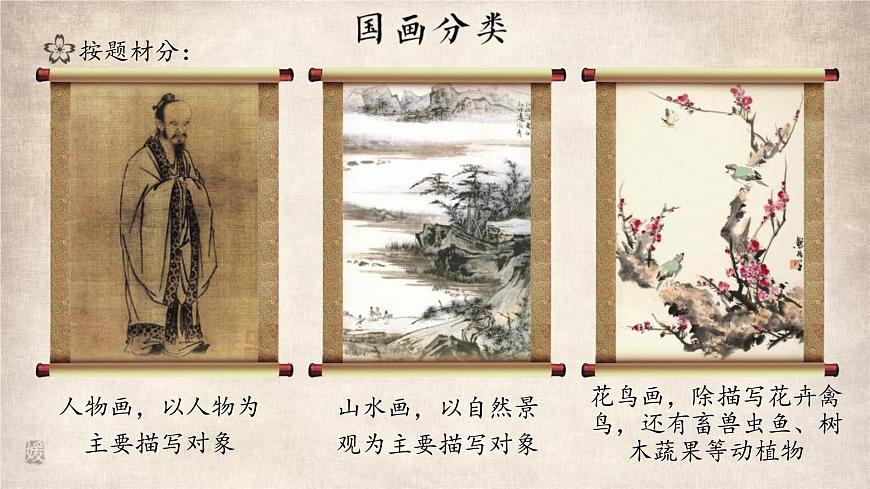 国画分类
按题材分：
人物画，以人物为
主要描写对象
山水画，以自然景
观为主要描写对象
花鸟画，除描写花卉禽
鸟，还有畜兽虫鱼、树
木蔬果等动植物
媛